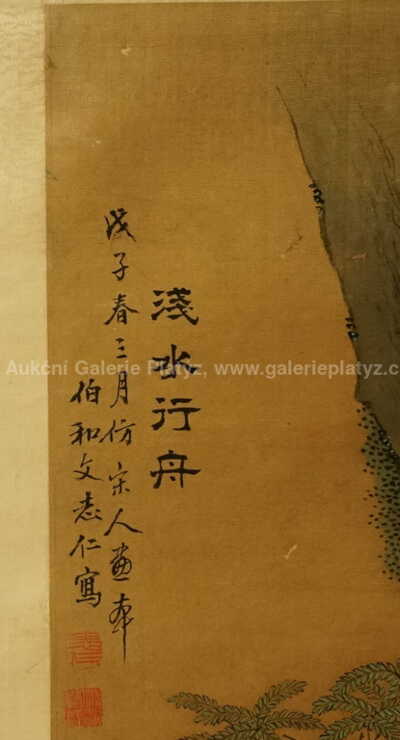 淺水行舟
戊子春三月仿宋人畫本
伯和文志仁寫
Aukční Galerie Platyz, www.galerieplatyz.c